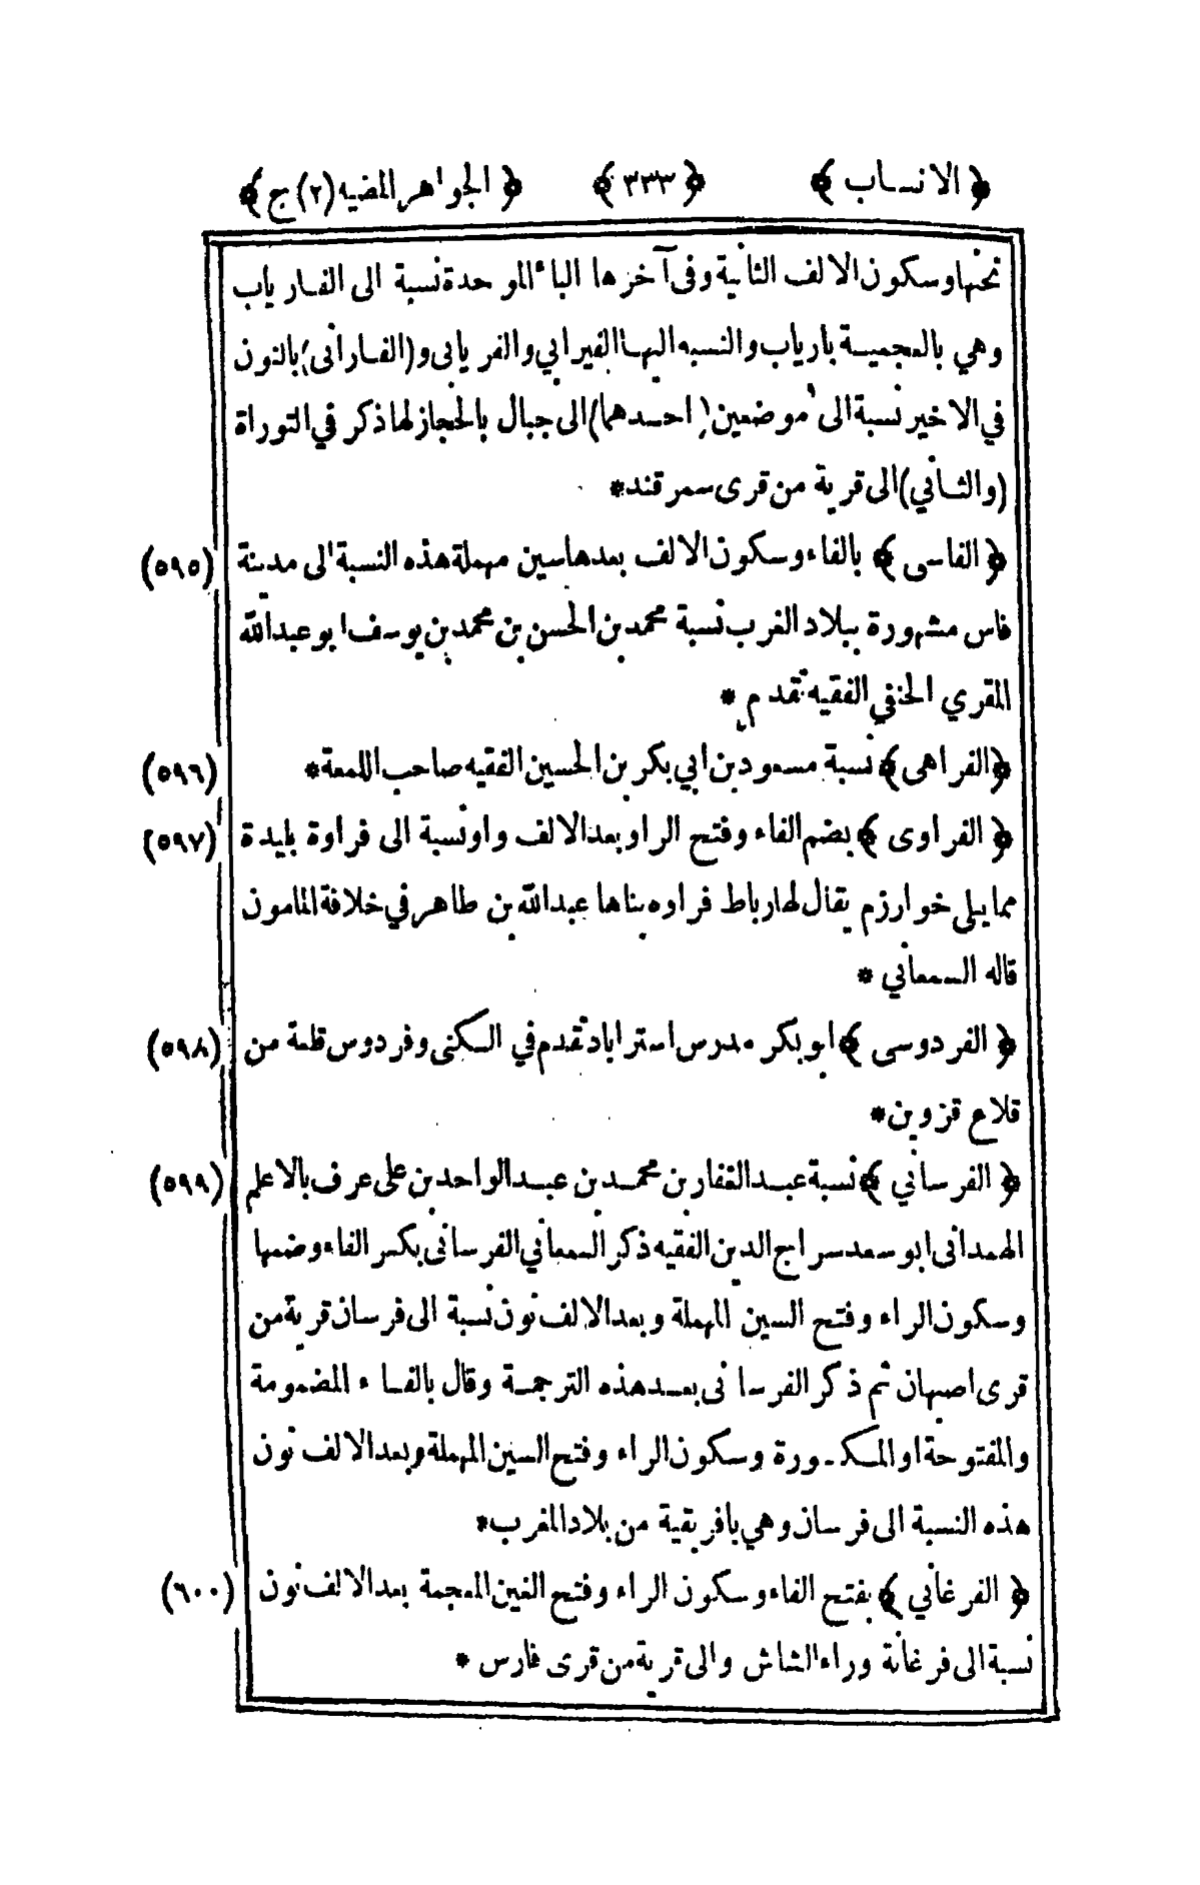 ﴿ الانساب ﴾ ﴿ ٣٣٣ ﴾ ﴿ الجواهر المضيه (٢) ج ﴾
تحتها وسكون الالف الثانية وفى آخرها الباء الموحدة نسبة الى الفارياب
وهي بالعجمية بارياب والنسبه اليها الفيرابي والفريابى و(الفارانى) بالنون
في الاخير نسبة الى موضعين (احدهما) الى جبال بالحجاز لها ذكر في التوراة
(والثاني) الى قرية من قرى سمرقند*
﴿ الفاسى ﴾ بالفاء وسكون الالف بعدها سين مهملة هذه النسبة الى مدينة (٥٩٥)
فاس مشهورة ببلاد الغرب نسبة محمد بن الحسن بن محمد بن يوسف ابو عبدالله
المقري الحنفي الفقيه تقدم *
﴿ الفراهى ﴾ نسبة مسعود بن ابي بكر بن الحسين الفقيه صاحب اللمعة* (٥٩٦)
﴿ الفراوى ﴾ بضم الفاء وفتح الراو بعد الالف واو نسبة الى فراوة بليدة (٥٩٧)
مما يلى خوارزم يقال لها رباط فراوه بناها عبدالله بن طاهر في خلافة المامون
قاله السمعاني *
﴿ الفردوسى ﴾ ابو بكر مدرس استراباد تقدم في الكنى وفردوس قلعة من (٥٩٨)
قلاع قزوين*
﴿ الفرساني ﴾ نسبة عبد الغفار بن محمد بن عبد الواحد بن على عرف بالاعلم (٥٩٩)
الهمدانى ابو سعد سراج الدين الفقيه ذكر السمعاني الفرسانى بكسر الفاء وضمها
وسكون الراء وفتح السين المهملة وبعد الالف نون نسبة الى فرسان قرية من
قرى اصبهان ثم ذكر الفرسانى بعد هذه الترجمة وقال بالفاء المضمومة
والمفتوحة او المكسورة وسكون الراء وفتح السين المهملة وبعد الالف نون
هذه النسبة الى فرسان وهي بافريقية من بلاد المغرب*
﴿ الفرغاني ﴾ بفتح الفاء وسكون الراء وفتح الغين المعجمة بعد الالف نون (٦٠٠)
نسبة الى فرغانة وراء الشاش والى قرية من قرى فارس *